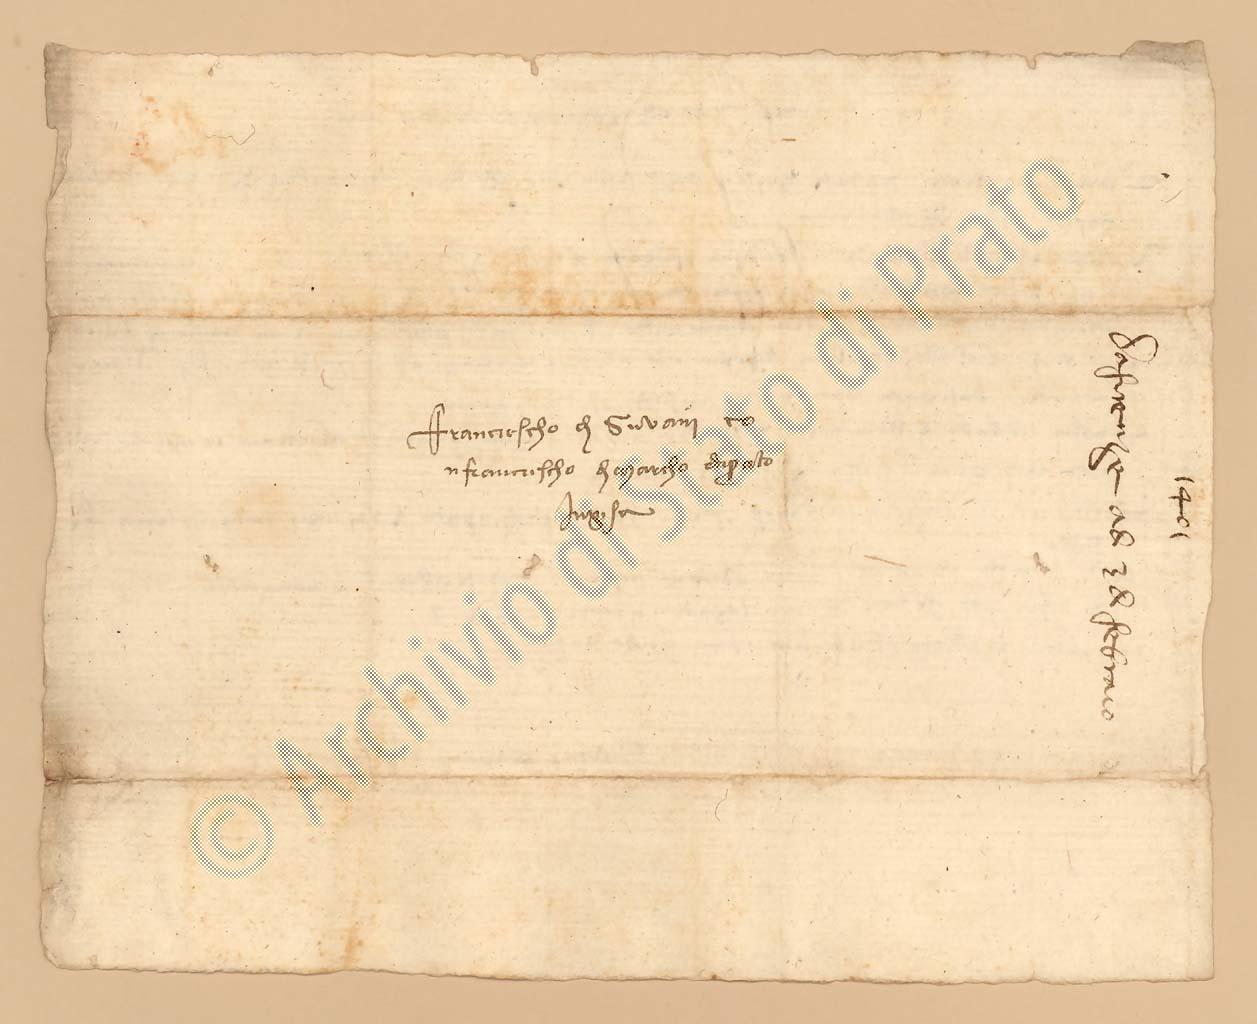 Franciescho di Giovani co
n franciescho di Marcho da prato
In pisa
1401
da firenze a dì 28 febraio
© Archivio di Stato di Prato